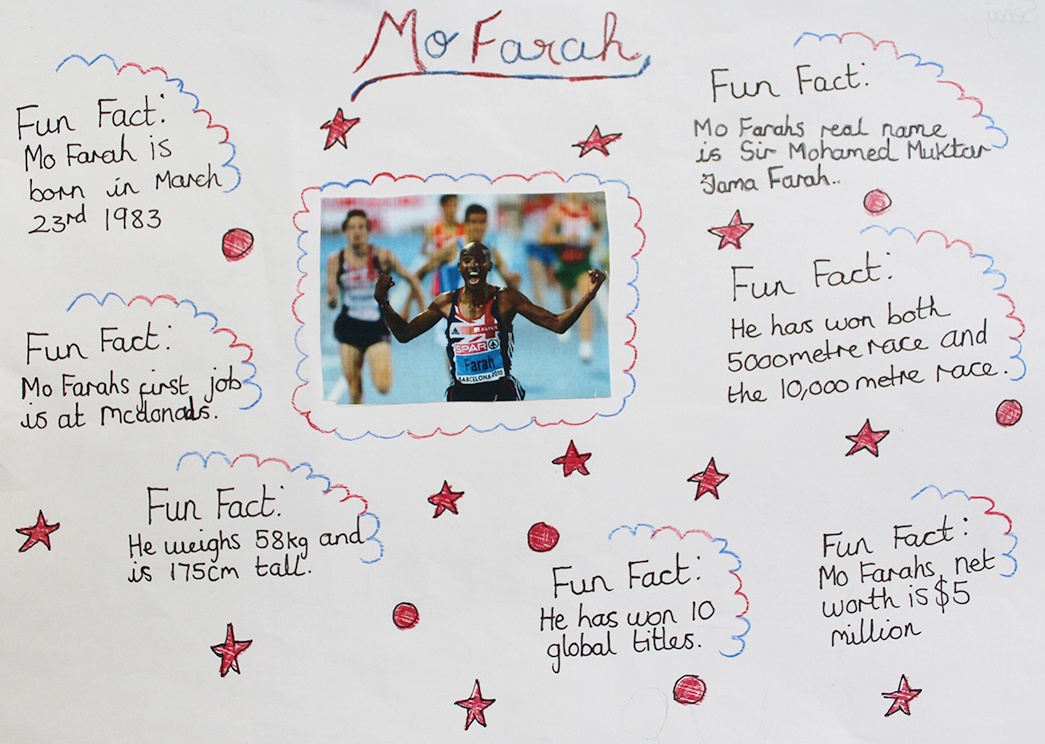 Mo Farah
Fun Fact:
Mo Farah is
born in March
23rd 1983
Fun Fact:
Mo Farahs real name
is Sir Mohamed Muktar
Jama Farah..
AVIVA
SPAR
Farah
BARCELONA 2010
Fun Fact:
He has won both
5000metre race and
the 10,000 metre race.
Fun Fact:
Mo Farahs first job
is at mcdonals.
Fun Fact:
He weighs 58kg and
is 175cm tall.
Fun Fact:
He has won 10
global titles.
Fun Fact:
Mo Farahs net
worth is $5
million